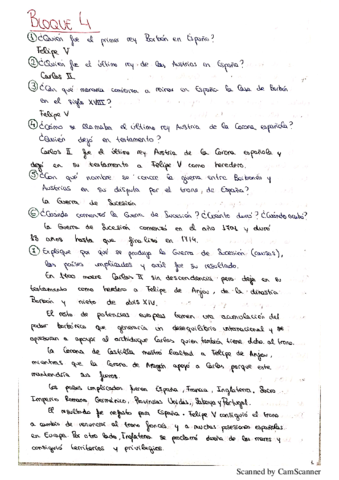 BLOQUE 4
① ¿Quién fue el primer rey Borbón en España?
Felipe V
② ¿Quién fue el último rey de los Austrias en España?
Carlos II.
③ ¿Con qué monarca comienza a reinar en España la Casa de Borbón
en el siglo XVIII?
Felipe V
④ ¿Cómo se llamaba el último rey Austria de la Corona española?
¿Quién dejó en testamento?
Carlos II fue el último rey Austria de la Corona española y
dejó en su testamento a Felipe V como heredero.
⑤ ¿Con qué nombre se conoce la guerra entre Borbones y
Austrias en su disputa por el trono de España?
La Guerra de Sucesión
⑥ ¿Cuándo comenzó la Guerra de Sucesión? ¿Cuánto duró? ¿Cuándo acabó?
La Guerra de Sucesión comenzó en el año y duró
años hasta que finalizó en 1714.
⑦ Explique por qué se produjo la Guerra de Sucesión (causas),
los países implicados y cuál fue su resultado.
En 1700 muere Carlos II sin descendencia pero deja en su
testamento como heredero a Felipe de Anjou, de la dinastía
Borbón y nieto de Luis XIV.
El resto de potencias europeas temen una acumulación del
poder borbónico que generaría un desequilibrio internacional y se
apresuran a apoyar al archiduque Carlos quien también tiene dcho. al trono.
La Corona de Castilla mostró lealtad a Felipe de Anjou,
mientras que la Corona de Aragón apoyó a Carlos porque este
mantendría sus fueros.
Los países implicados fueron España, Francia, Inglaterra, Sacro
Imperio Romano Germánico, Provincias Unidas, Saboya y Portugal.
El resultado fue nefasto para España. Felipe V consiguió el trono
a cambio de renunciar al trono francés y a muchas posesiones españolas
en Europa. Por otro lado, Inglaterra se proclamó dueña de los mares y
consiguió territorios y privilegios.
6
Scanned by CamScanner